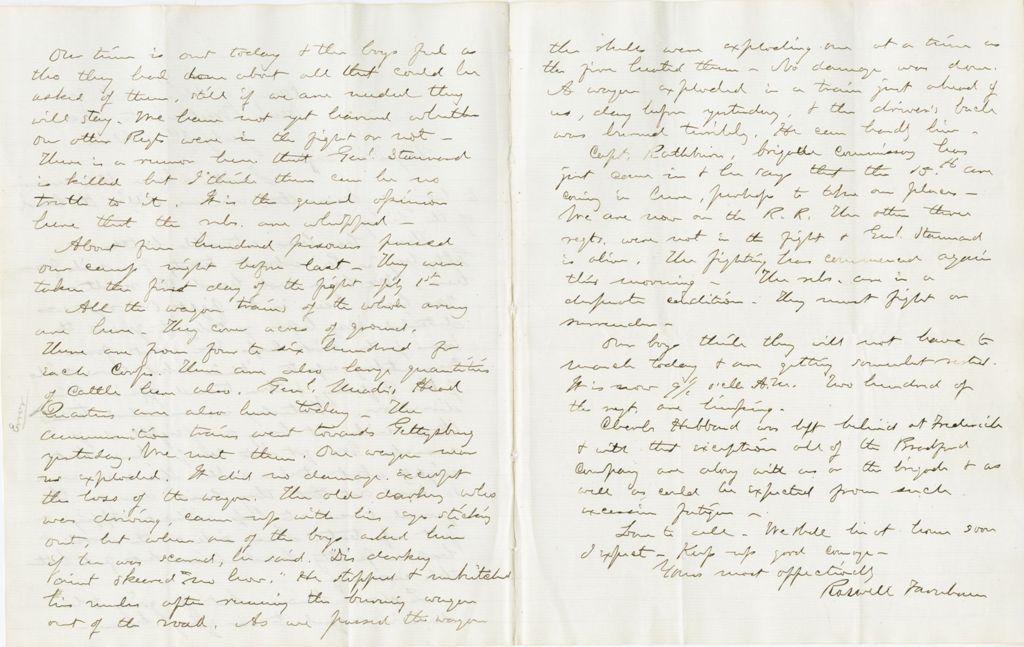 Our time is out today & the boys feel as
tho they had done about all that could be
asked of them, still if we are needed they
will stay. We have not yet learned whether
our other Regts were in the fight or not –
There is a rumor here that Genl. Stannard
is killed but I think there can be no
truth to it. It is the general opinion
here that the rebs. are whipped –
About five hundred prisoners passed
our camp night before last – They were
taken the first day of the fight July 1st
All the wagon trains of the whole army
are here – They cover acres of ground.
There are from four to six hundred for
each Corps. There are also large quantities
of Cattle here also. Genl. Meade's Head
Quarters are also here today – The
Error
ammunition trains went towards Gettysburg
yesterday. We met them. One wagon near
us exploded. It did no damage except
the loss of the wagon. The old darkey who
was driving, came up with his eyes sticking
out, but when one of the boys asked him
if he was scared, he said. "Dis darkey
aint skeered no how." He stopped & unhitched
his mules after running the burning wagon
out of the road. As we passed the wagon
the shells were exploding one at a time as
the fire heated them – No damage was done.
A wagon exploded in a train just ahead of
us, day before yesterday, & the driver's back
was burned terribly. He can hardly live –
Capt. Rathburn, brigade commissary has
just come in & he says that the 15.th are
coming in here, perhaps to take our places –
We are now on the R. R. The other three
regts. were not in the fight & Genl Stannard
is alive. The fighting has commenced again
this morning – The rebs. are in a
desperate condition. They must fight or
surrender –
Our boys think they will not have to
march today & are getting somewhat rested.
It is now o'clk A.M. Two hundred of
the regt. are limping.
Charles Hibbard was left behind at Frederick
& with that exception all of the Bradford
Company are along with us or the brigade & as
well as could be expected from such
excessive fatigue –
Love to all – We shall be at home soon
I expect – Keep up good courage –
Yours most affectionately
Roswell Farnham